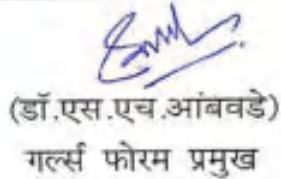 (डॉ.एस.एच.आंबवडे)
गर्ल्स फोरम प्रमुख